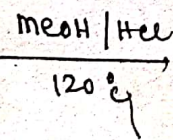 MeOH / HCl
120°C